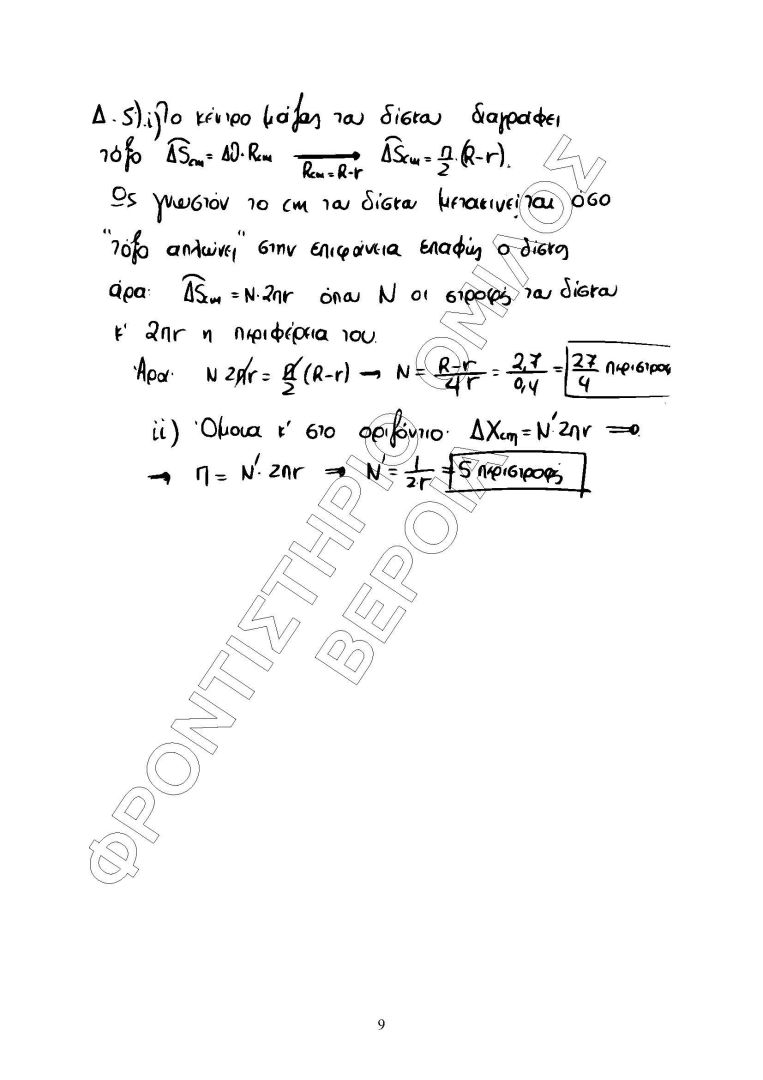 Δ.5).i) Το κέντρο μάζας του δίσκου διαγράφει
τόξο ΔS_cm = Δθ·R_cm ⟶ (R_cm = R-r) ΔS_cm = π/2·(R-r).
Ως γνωστόν το cm του δίσκου μετακινείται όσο
"τόξο απλώνει" στην επιφάνεια επαφής ο δίσκος
άρα: ΔS_cm = N·2πr όπου N οι στροφές του δίσκου
κ' 2πr η περιφέρεια του.
Άρα· N 2πr = π/2 (R-r) → N = R-r/4r = 2,7/0,4 = 27/4 περιστροφ
ii) Όμοια κ' στο οριζόντιο· ΔX_cm = N'·2πr ⇒
→ π = N'·2πr ⇒ N' = 1/2·r = 5 περιστροφές
ΦΡΟΝΤΙΣΤΗΡΙΟ ΟΜΙΛΟΣ
ΒΕΡΟΙΑ
9